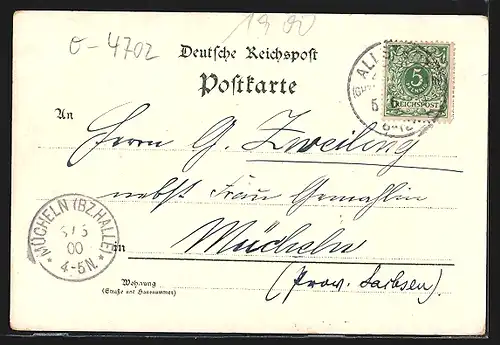 1900
O-4702
Deutsche Reichspost
Postkarte
5
REICHSPOST
An
Herrn G. Zweiling
nebst Frau Gemahlin
in Mücheln
(Prov. Sachsen).
MÜCHELN (BZ. HALLE)
00
4-5N.
Wohnung
(Straße und Hausnummer)